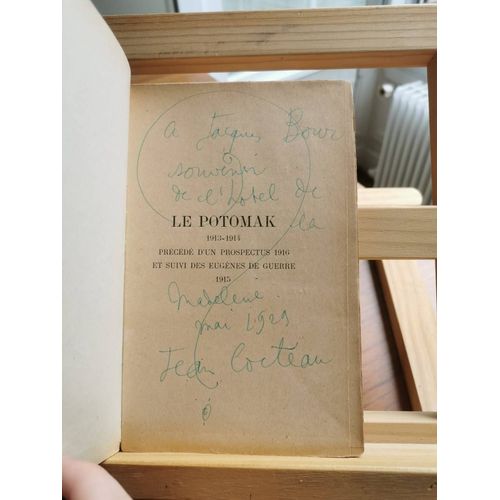 a Jacques Bour
souvenir
de l'hotel de
la
LE POTOMAK
1913-1914
PRÉCÉDÉ D'UN PROSPECTUS 1916
ET SUIVI DES EUGÈNES DE GUERRE
1915
Madeleine
mai 1929
Jean Cocteau